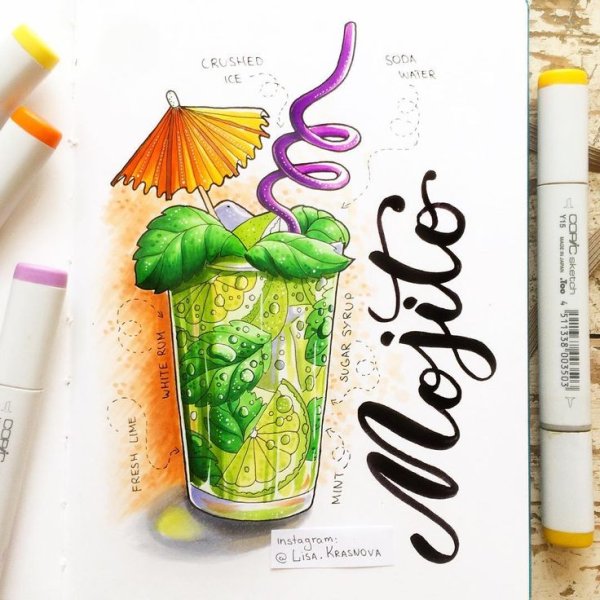 CRUSHED
ICE
SODA
WATER
WHITE RUM
SUGAR SYRUP
FRESH LIME
MINT
Mojito
instagram:
@ LISA.KRASNOVA
Y15
COPIC sketch
MADE IN JAPAN
.Too
4 511338 003503
COPIC